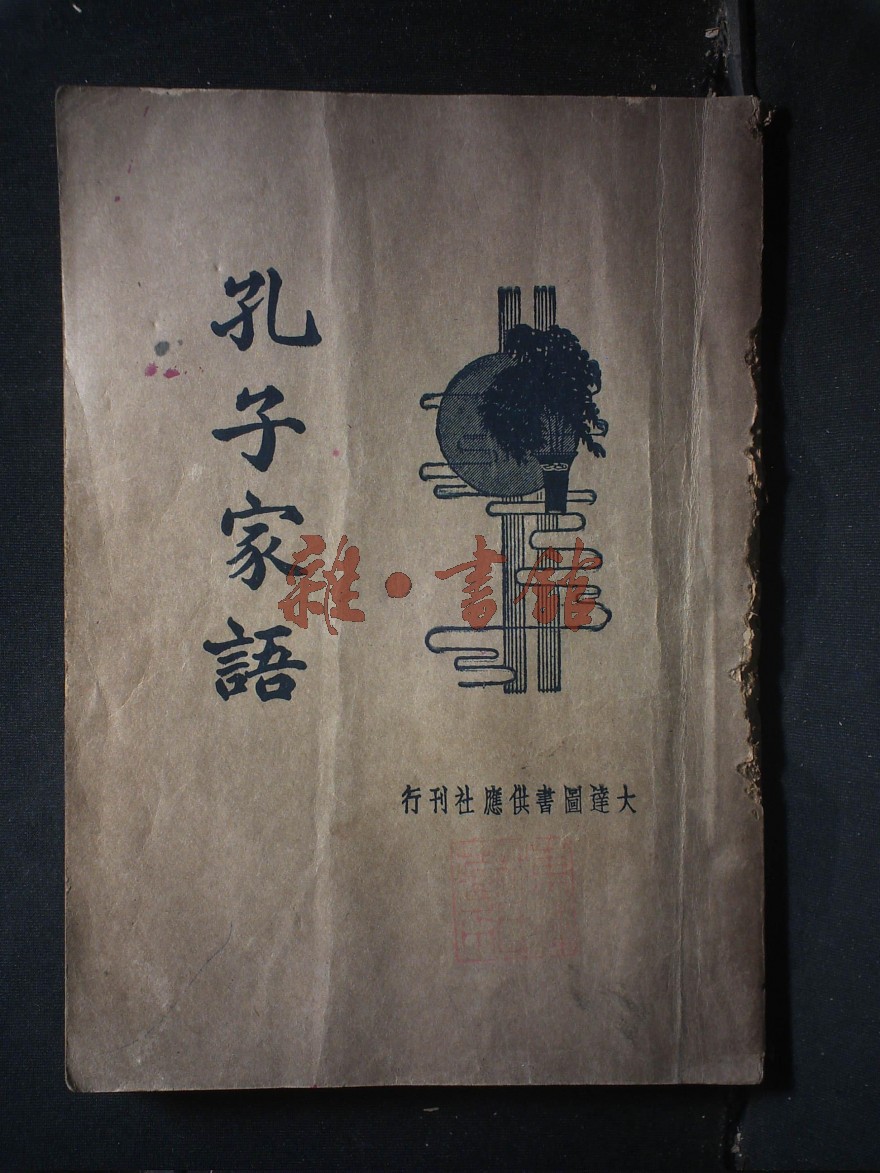 孔子家語
雜·書館
大達圖書供應社刊行